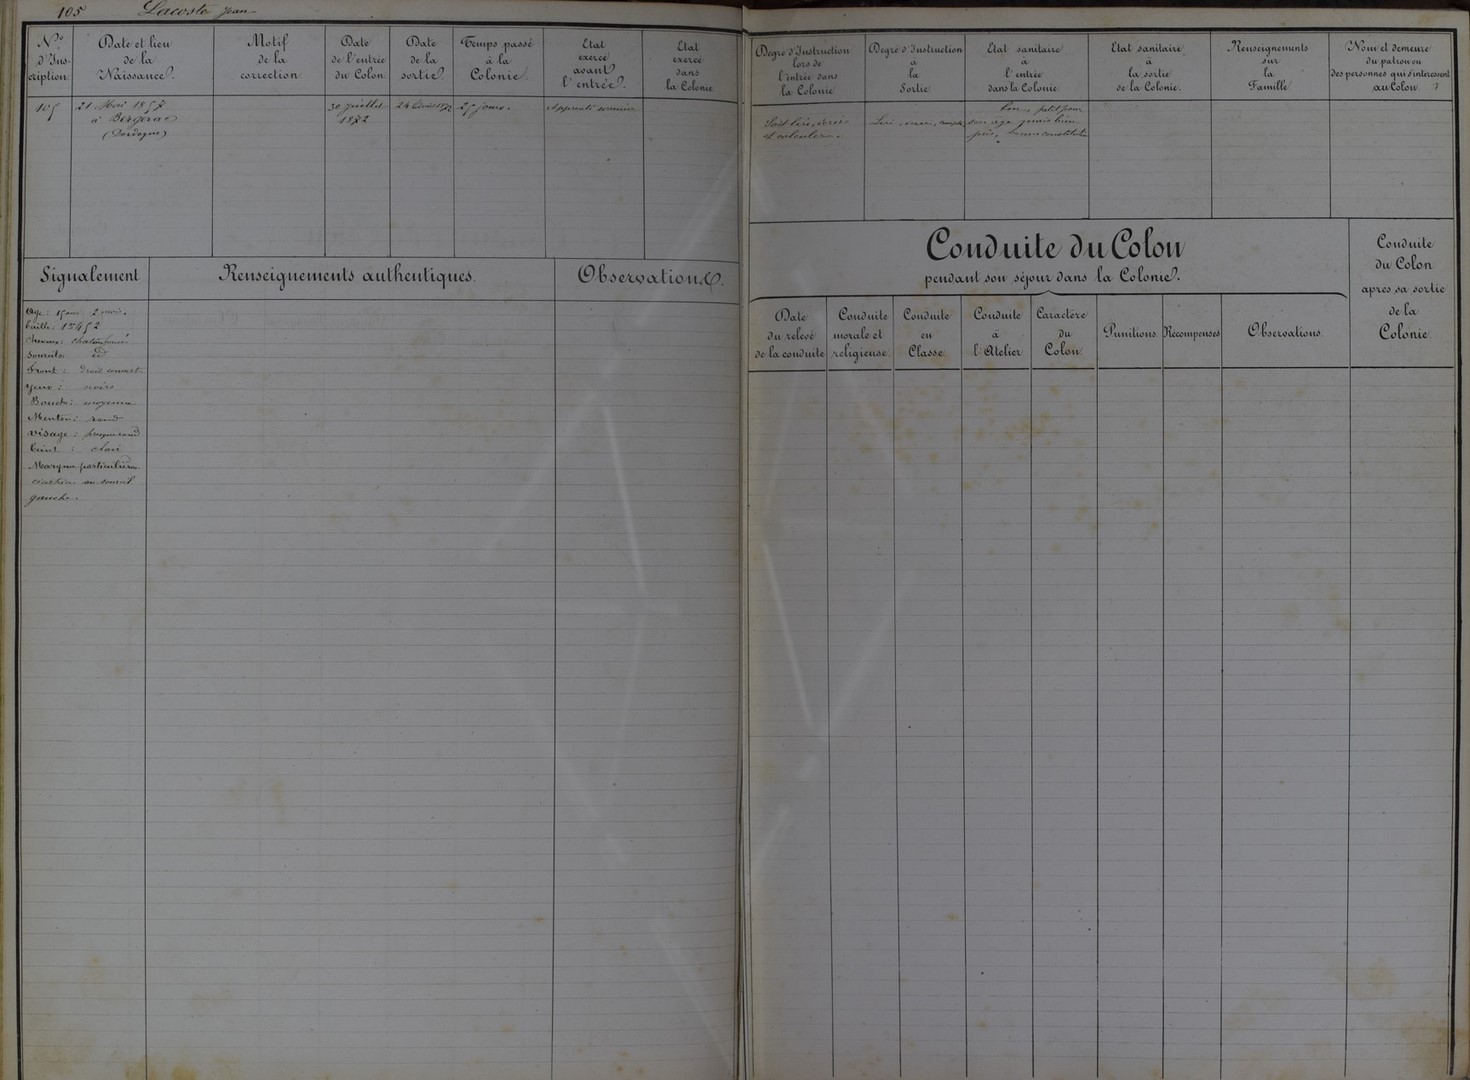 105 Lacoste Jean
N.º d'Ins-cription
Date et lieu de la Naissance.
Motif de la correction
Date de l'entrée du Colon
Date de la sortie
Temps passé à la Colonie
Etat exercé avant l'entrée.
Etat exercé dans la Colonie
105
21 Mai 1857
à Bergerac
(Dordogne)
30 juillet
1872
25 jours.
Apprenti
Signalement
Renseignements authentiques
Observations.
Age: 15 ans 2 mois.
Taille: 1m452
Cheveux:
Sourcils: id
Front: droit couvert
Yeux: noirs
Bouche: moyenne
Menton: rond
Visage: presque rond
Teint: clair
Marques particulières
cicatrice au sourcil
gauche.
Degré d'Instruction lors de l'entrée dans la Colonie
Degré d'Instruction à la Sortie
Etat sanitaire à l'entrée dans la Colonie
Etat sanitaire à la sortie de la Colonie.
Renseignements sur la Famille
Nom et demeure du patron ou des personnes qui s'intéressent au Colon
Sait lire, écrire
et calculer.
bon, petit pour
son age mais bien
pris, bonne constitution
Conduite du Colon
pendant son séjour dans la Colonie.
Conduite du Colon après sa sortie de la Colonie
Date du relevé de la conduite
Conduite morale et religieuse
Conduite en Classe
Conduite à l'Atelier
Caractère du Colon
Punitions
Recompenses
Observations